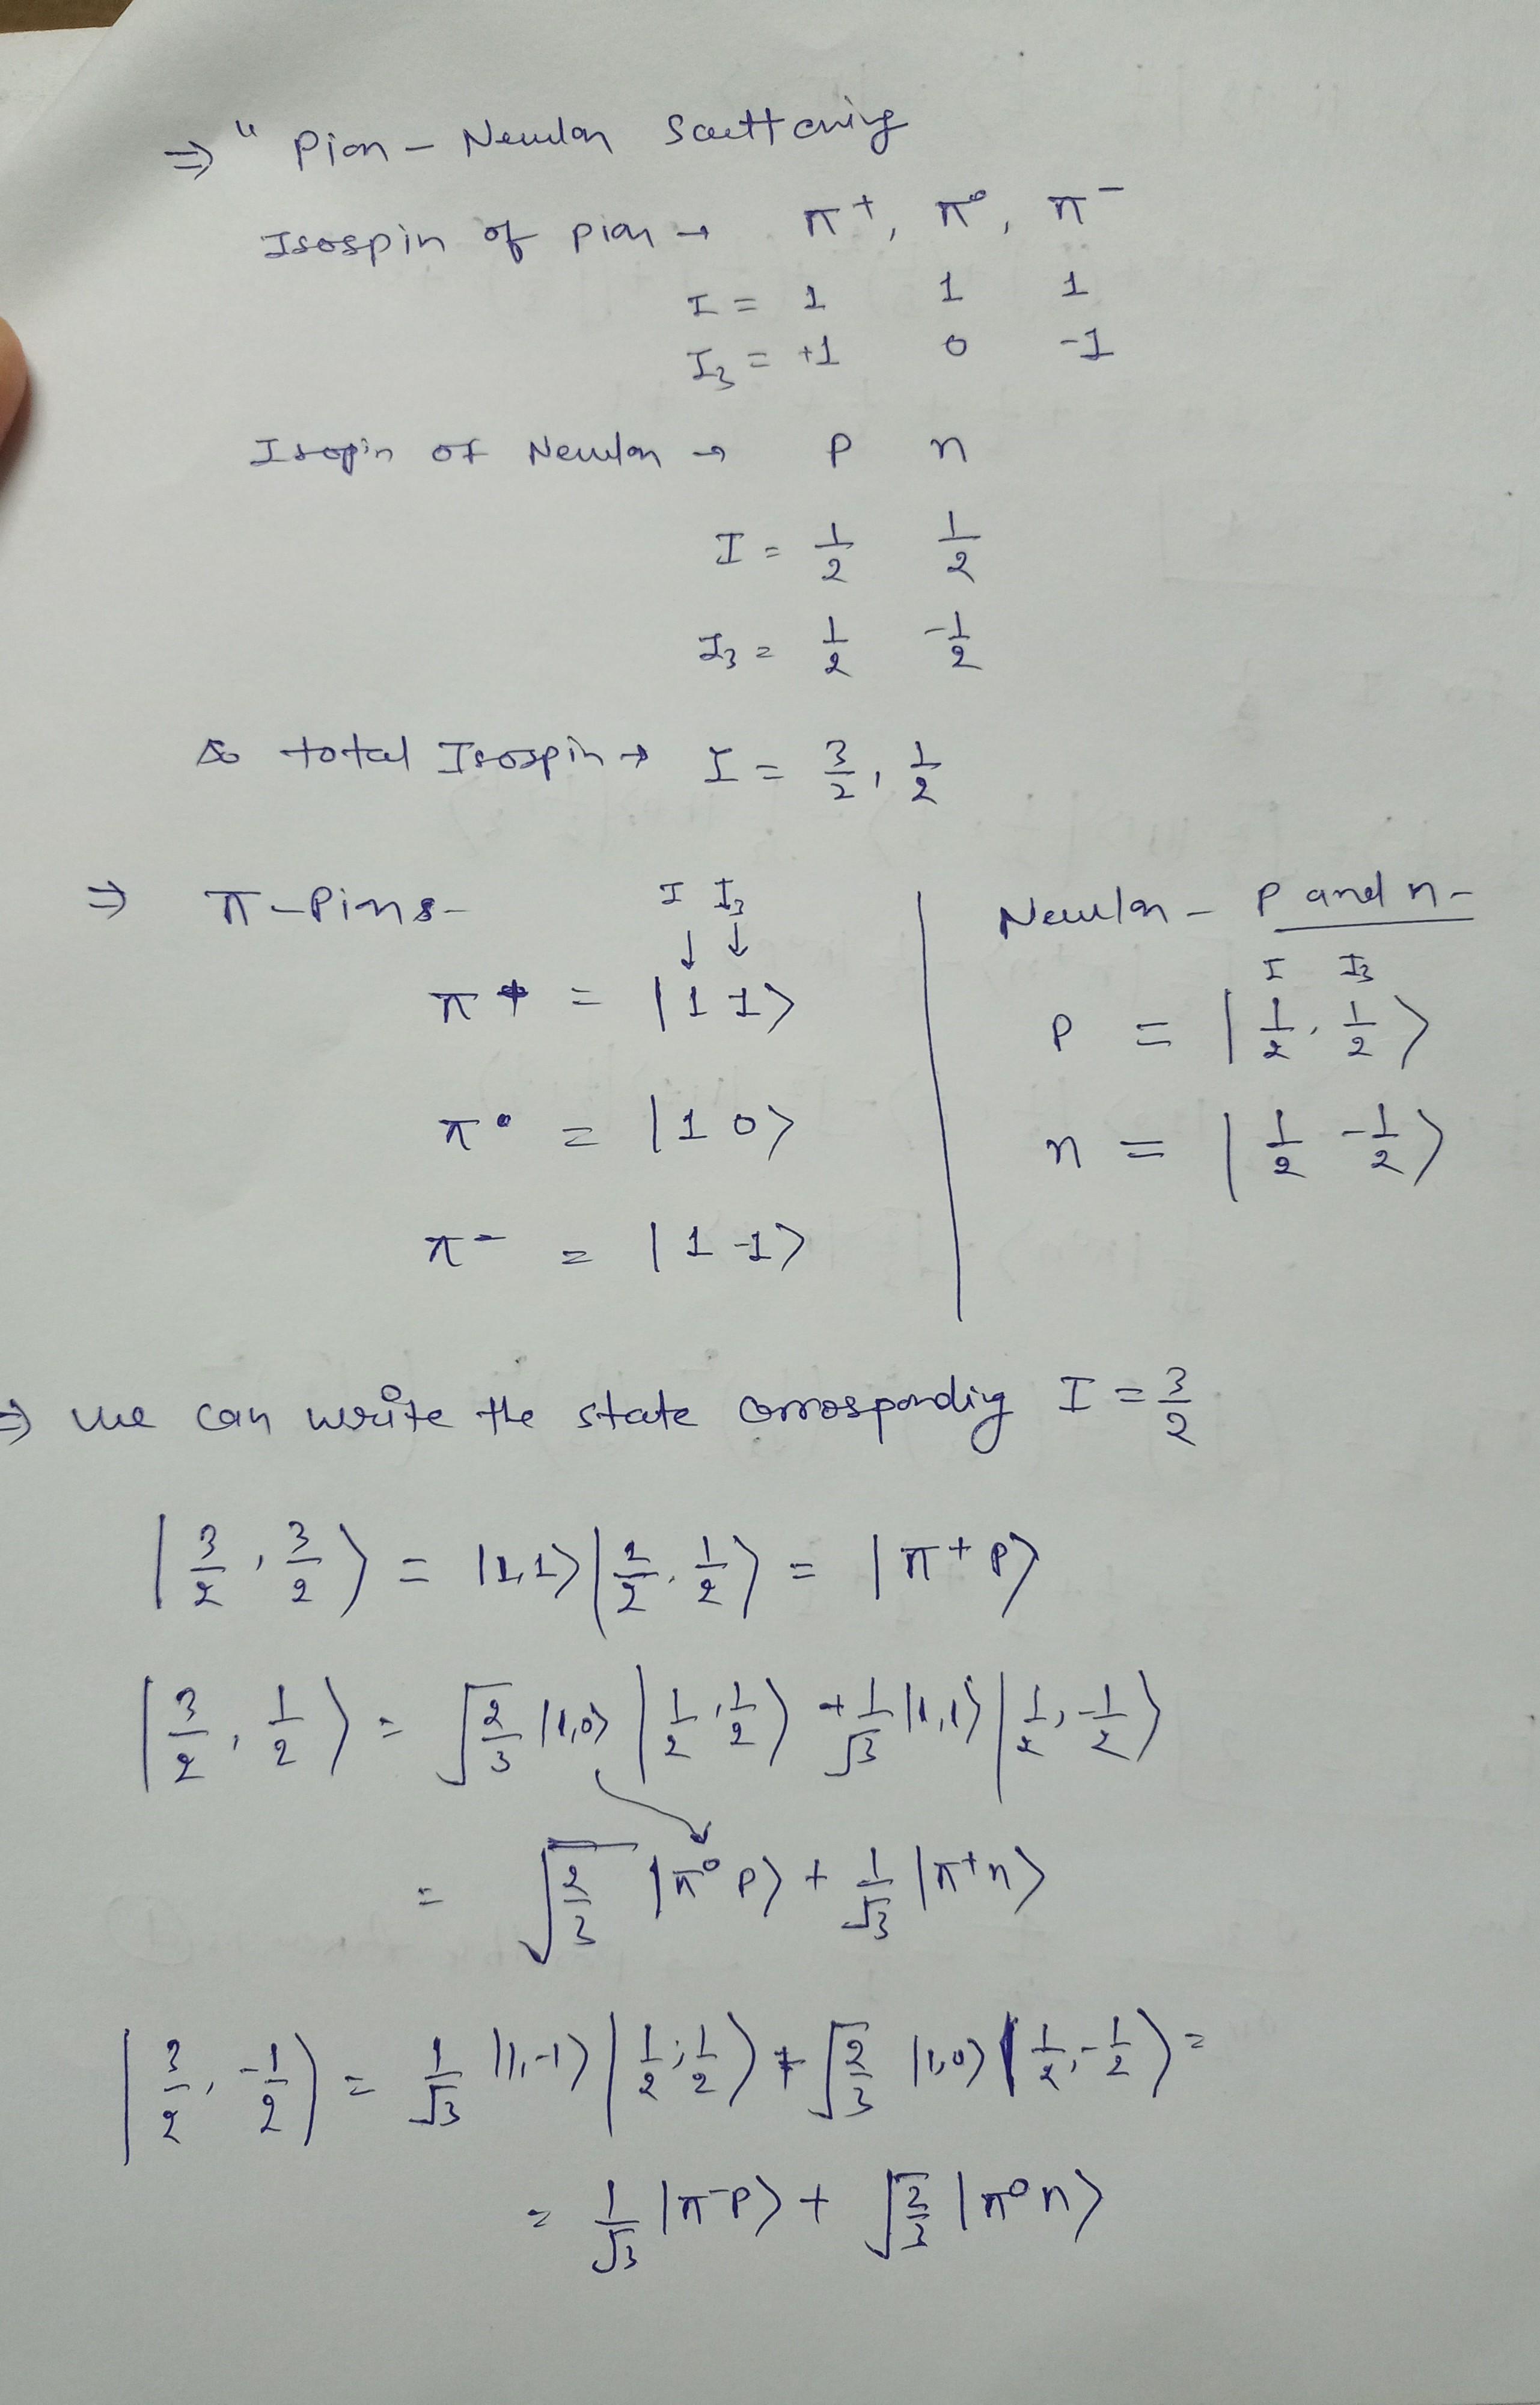 ⇒ " Pion – Neulon Scattering
Isospin of pion → π⁺, π⁰, π⁻
I = 1 1 1
I₃ = +1 0 -1
Isopin of Neulon → p n
I = 1/2 1/2
I₃ = 1/2 -1/2
so total Isospin → I = 3/2, 1/2
⇒ π-Pions-
I I₃
↓ ↓
π⁺ = |1 1⟩
π⁰ = |1 0⟩
π⁻ = |1 -1⟩
Neulon – p and n –
I I₃
p = |1/2, 1/2⟩
n = |1/2 -1/2⟩
⇒ we can write the state corrosponding I = 3/2
|3/2, 3/2⟩ = |1,1⟩|1/2, 1/2⟩ = |π⁺ p⟩
|3/2, 1/2⟩ = √(2/3) |1,0⟩ |1/2, 1/2⟩ + 1/√3 |1,1⟩ |1/2, -1/2⟩
= √(2/3) |π⁰ p⟩ + 1/√3 |π⁺n⟩
|3/2, -1/2⟩ = 1/√3 |1,-1⟩ |1/2, 1/2⟩ + √(2/3) |1,0⟩ |1/2, -1/2⟩ =
= 1/√3 |π⁻p⟩ + √(2/3) |π⁰n⟩